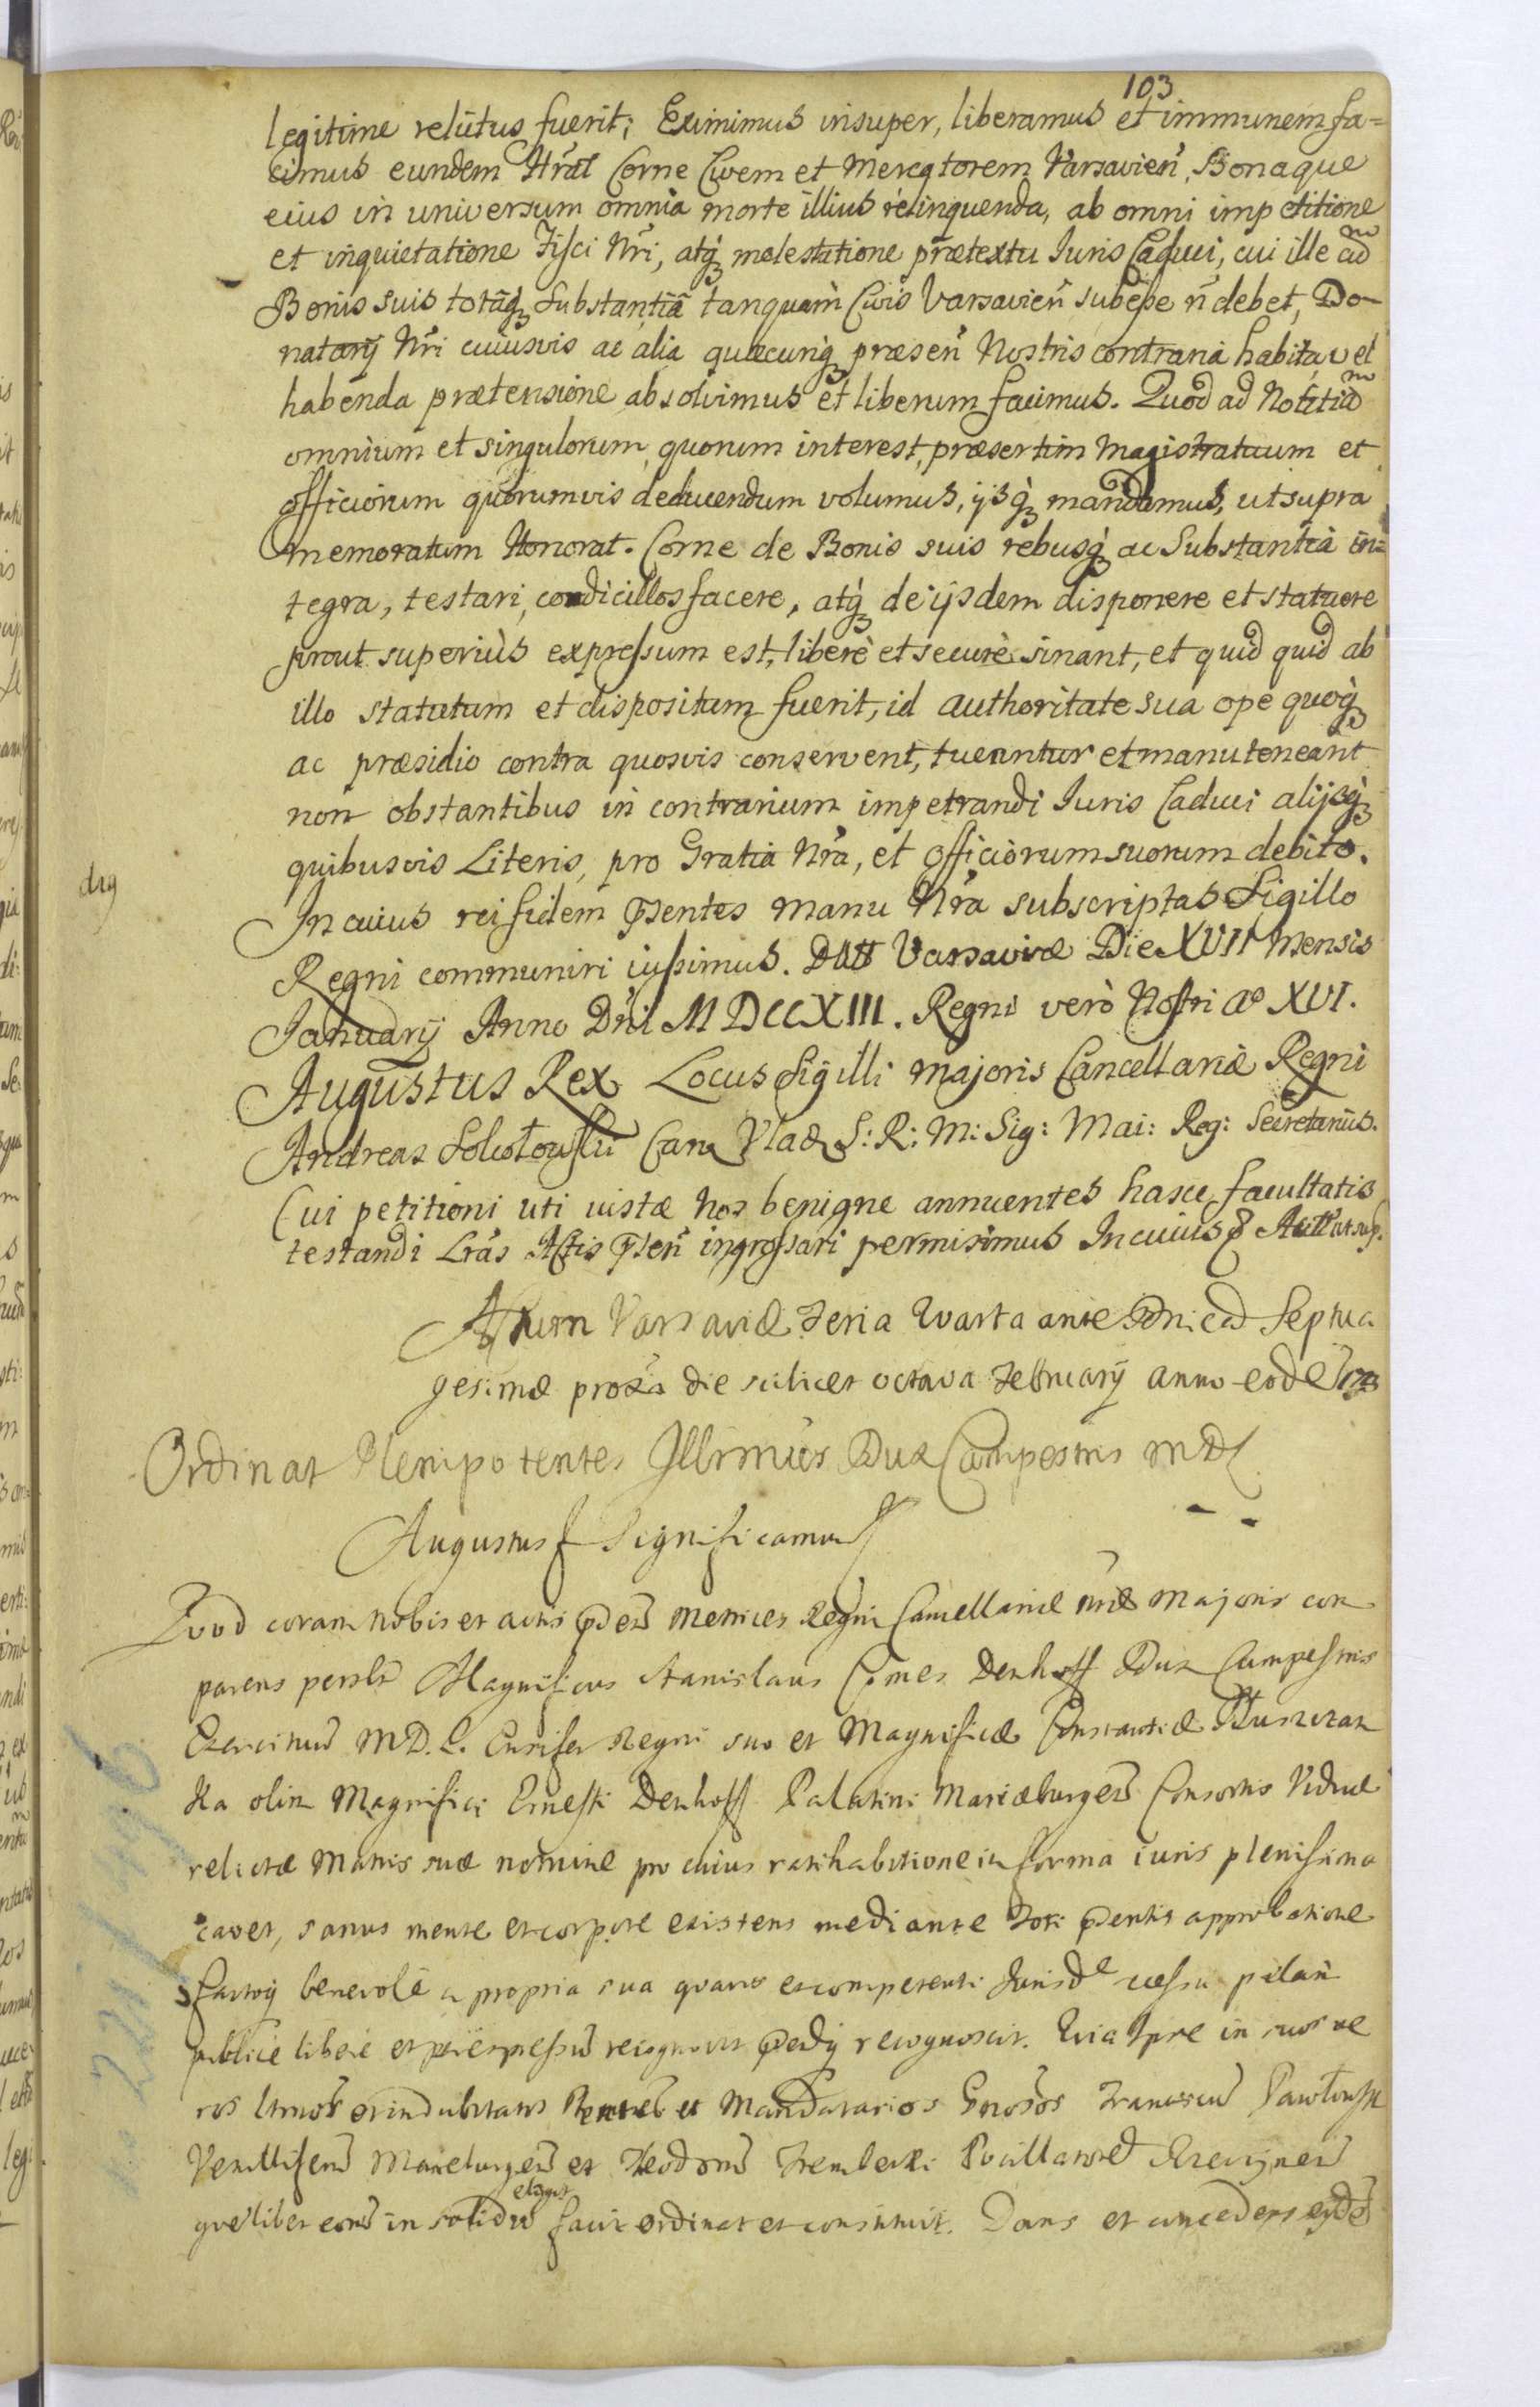 103
legitime relictus fuerit; Eximimus insuper, liberamus et immunem fa=
cimus eundem Hrat Corne Civem et Mercatorem Varsavien̄, Bonaque
eius in universum omnia morte illius relinquenda, ab omni impetitione
et inquietatione Fisci Nr̄i, atq́ꝫ molestatione prætextu Iuris Caduci, cui ille cum
Bonis suis totáq́ꝫ Substantiâ tanquam Civis Varsavien̄ subesse n̄ debet, Do-
natarij Nr̄i cuiusvis ac alia quacunq́ꝫ præsen̄ Nostris contraria habita, vel
habenda prætensione absolvimus et liberum facimus. Quod ad Notitiam
omnium et singulorum, quorum interest, præsertim Magistratuum et
officiorum quorumvis deducendum volumus, ijsq́ꝫ mandamus, ut supra
memoratum Honorat. Corne de Bonis suis rebusq́ꝫ ac Substantia in=
tegra, testari, condicillos facere, atq́ꝫ de ijsdem disponere et statuere
prout superiùs expressum est, liberè et securè sinant, et quid quid ab
illo statutum et dispositum fuerit, id authoritate sua ope quoq́ꝫ
ac præsidio contra quosvis conservent, tueantur et manuteneant
non obstantibus in contrarium impetrandi Iuris Caduci alijsq́ꝫ
quibusvis Literis, pro Gratia Nr̄a, et officiorum suorum debito.
In cuius rei fidem p̄sentes manu Nr̄a subscriptas Sigillo
Regni communiri iussimus. Datt Varsaviæ Die XVII Mensis
Januarij Anno Dn̄i MDCCXIII. Regni verò Nostri aᵒ XVI.
Augustus Rex Locus Sigilli majoris Cancellariæ Regni
Andreas Can Vlad S: R: M: Sig: Mai: Reg: Secretarius.
Cui petitioni uti iustæ Nos benigne annuentes hasce facultatis
testandi Lr̄as Actis p̄sen̄ ingrossari permisimus In cuius
Actum Varsaviæ Feria Quarta ante Dnicam Septua
gesimæ proxa die scilicet octava Februarij anno eodē 1713
Ordinat Plenipotentes Illrmus Dux Campestris MDL
Augustus Significamus
Quod coram Nobis et actis p̄den̄ Metrices Regni Cancellariæ nr̄æ majoris com
parens Magnificus Stanislaus Comes Denhoff Dux Campestris
Exercituū M.D.L. Ensifer Regni suo et Magnificæ Constantiæ
ka olim Magnifici Ernesti Denhoff Palatini Mariæburgen̄ Consortis Viduæ
relictæ Matris suæ nomine pro cuius ratihabitione in forma iuris plenissima
cavet, sanus mente et corpore existens mediante approbatione
benevolé a propria sua et competenti
publice libere et recognovit recognoscit. Quia Ipse in suos ve
ros ltmos et indubitatos Plentes et Mandatarios Gnosos Franciscū
Vexilliferū Mareburgen̄ et Trembecki
queᵐlibet eorū in solidū elegit facit ordinat et constituit. Dans et concedens eisdē
dig